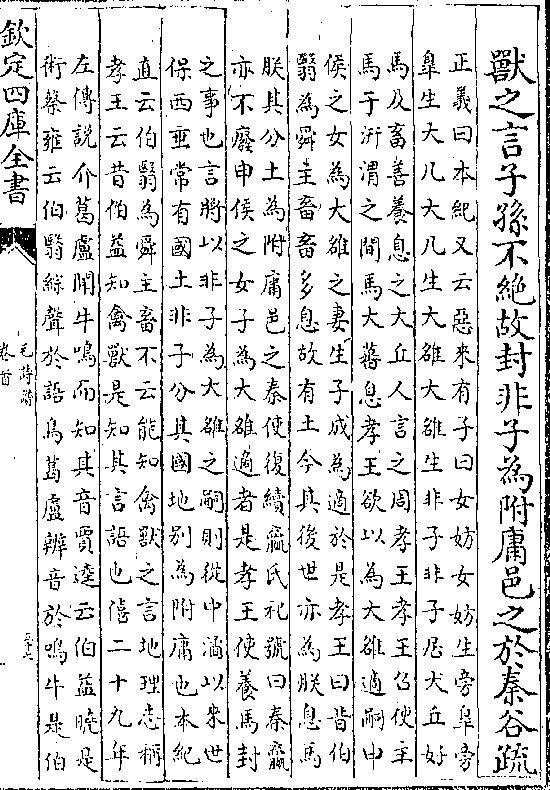 獸之言子孫不絶故封非子為附庸邑之於秦谷疏
正義曰本紀又云惡來有子曰女妨女妨生旁臯旁
臯生大几大几生大雒大雒生非子非子居犬丘好
馬及畜善養息之犬丘人言之周孝王孝王召使主
馬于汧渭之間馬大蕃息孝王欲以為大雒適嗣申
侯之女為大雒之妻生子成為適於是孝王曰昔伯
翳為舜主畜畜多息故有土今其後世亦為朕息馬
朕其分土為附庸邑之秦使復續嬴氏祀號曰秦嬴
亦不廢申侯之女子為大雒適者是孝王使養馬封
之事也言將以非子為大雒之嗣則從中潏以來世
保西垂常有國土非子分其國地别為附庸也本紀
直云伯翳為舜主畜不云能知禽獸之言地理志稱
孝王云昔伯益知禽獸是知其言語也僖二十九年
左傳説介葛盧聞牛鳴而知其音賈逵云伯益曉是
術蔡雍云伯翳綜聲於語鳥葛盧辨音於鳴牛是伯
欽定四庫全書
毛詩疏
卷首